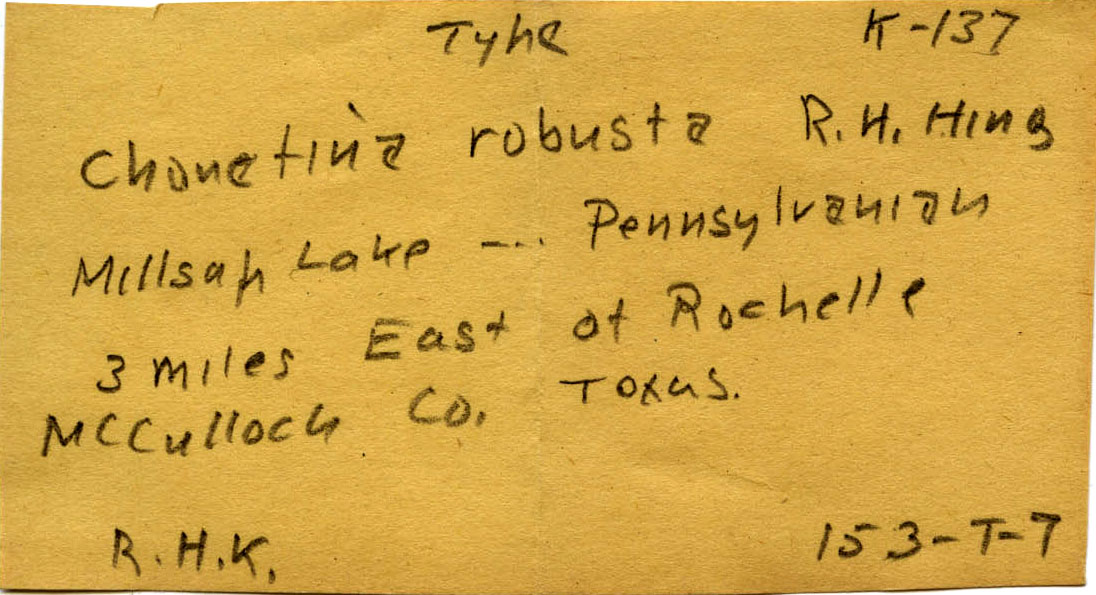 Type K-137
Chonetina robusta R.H. King
Millsap Lake --- Pennsylvanian
3 miles East of Rochelle
McCulloch Co. Texas.
R.H.K. 153-T-7